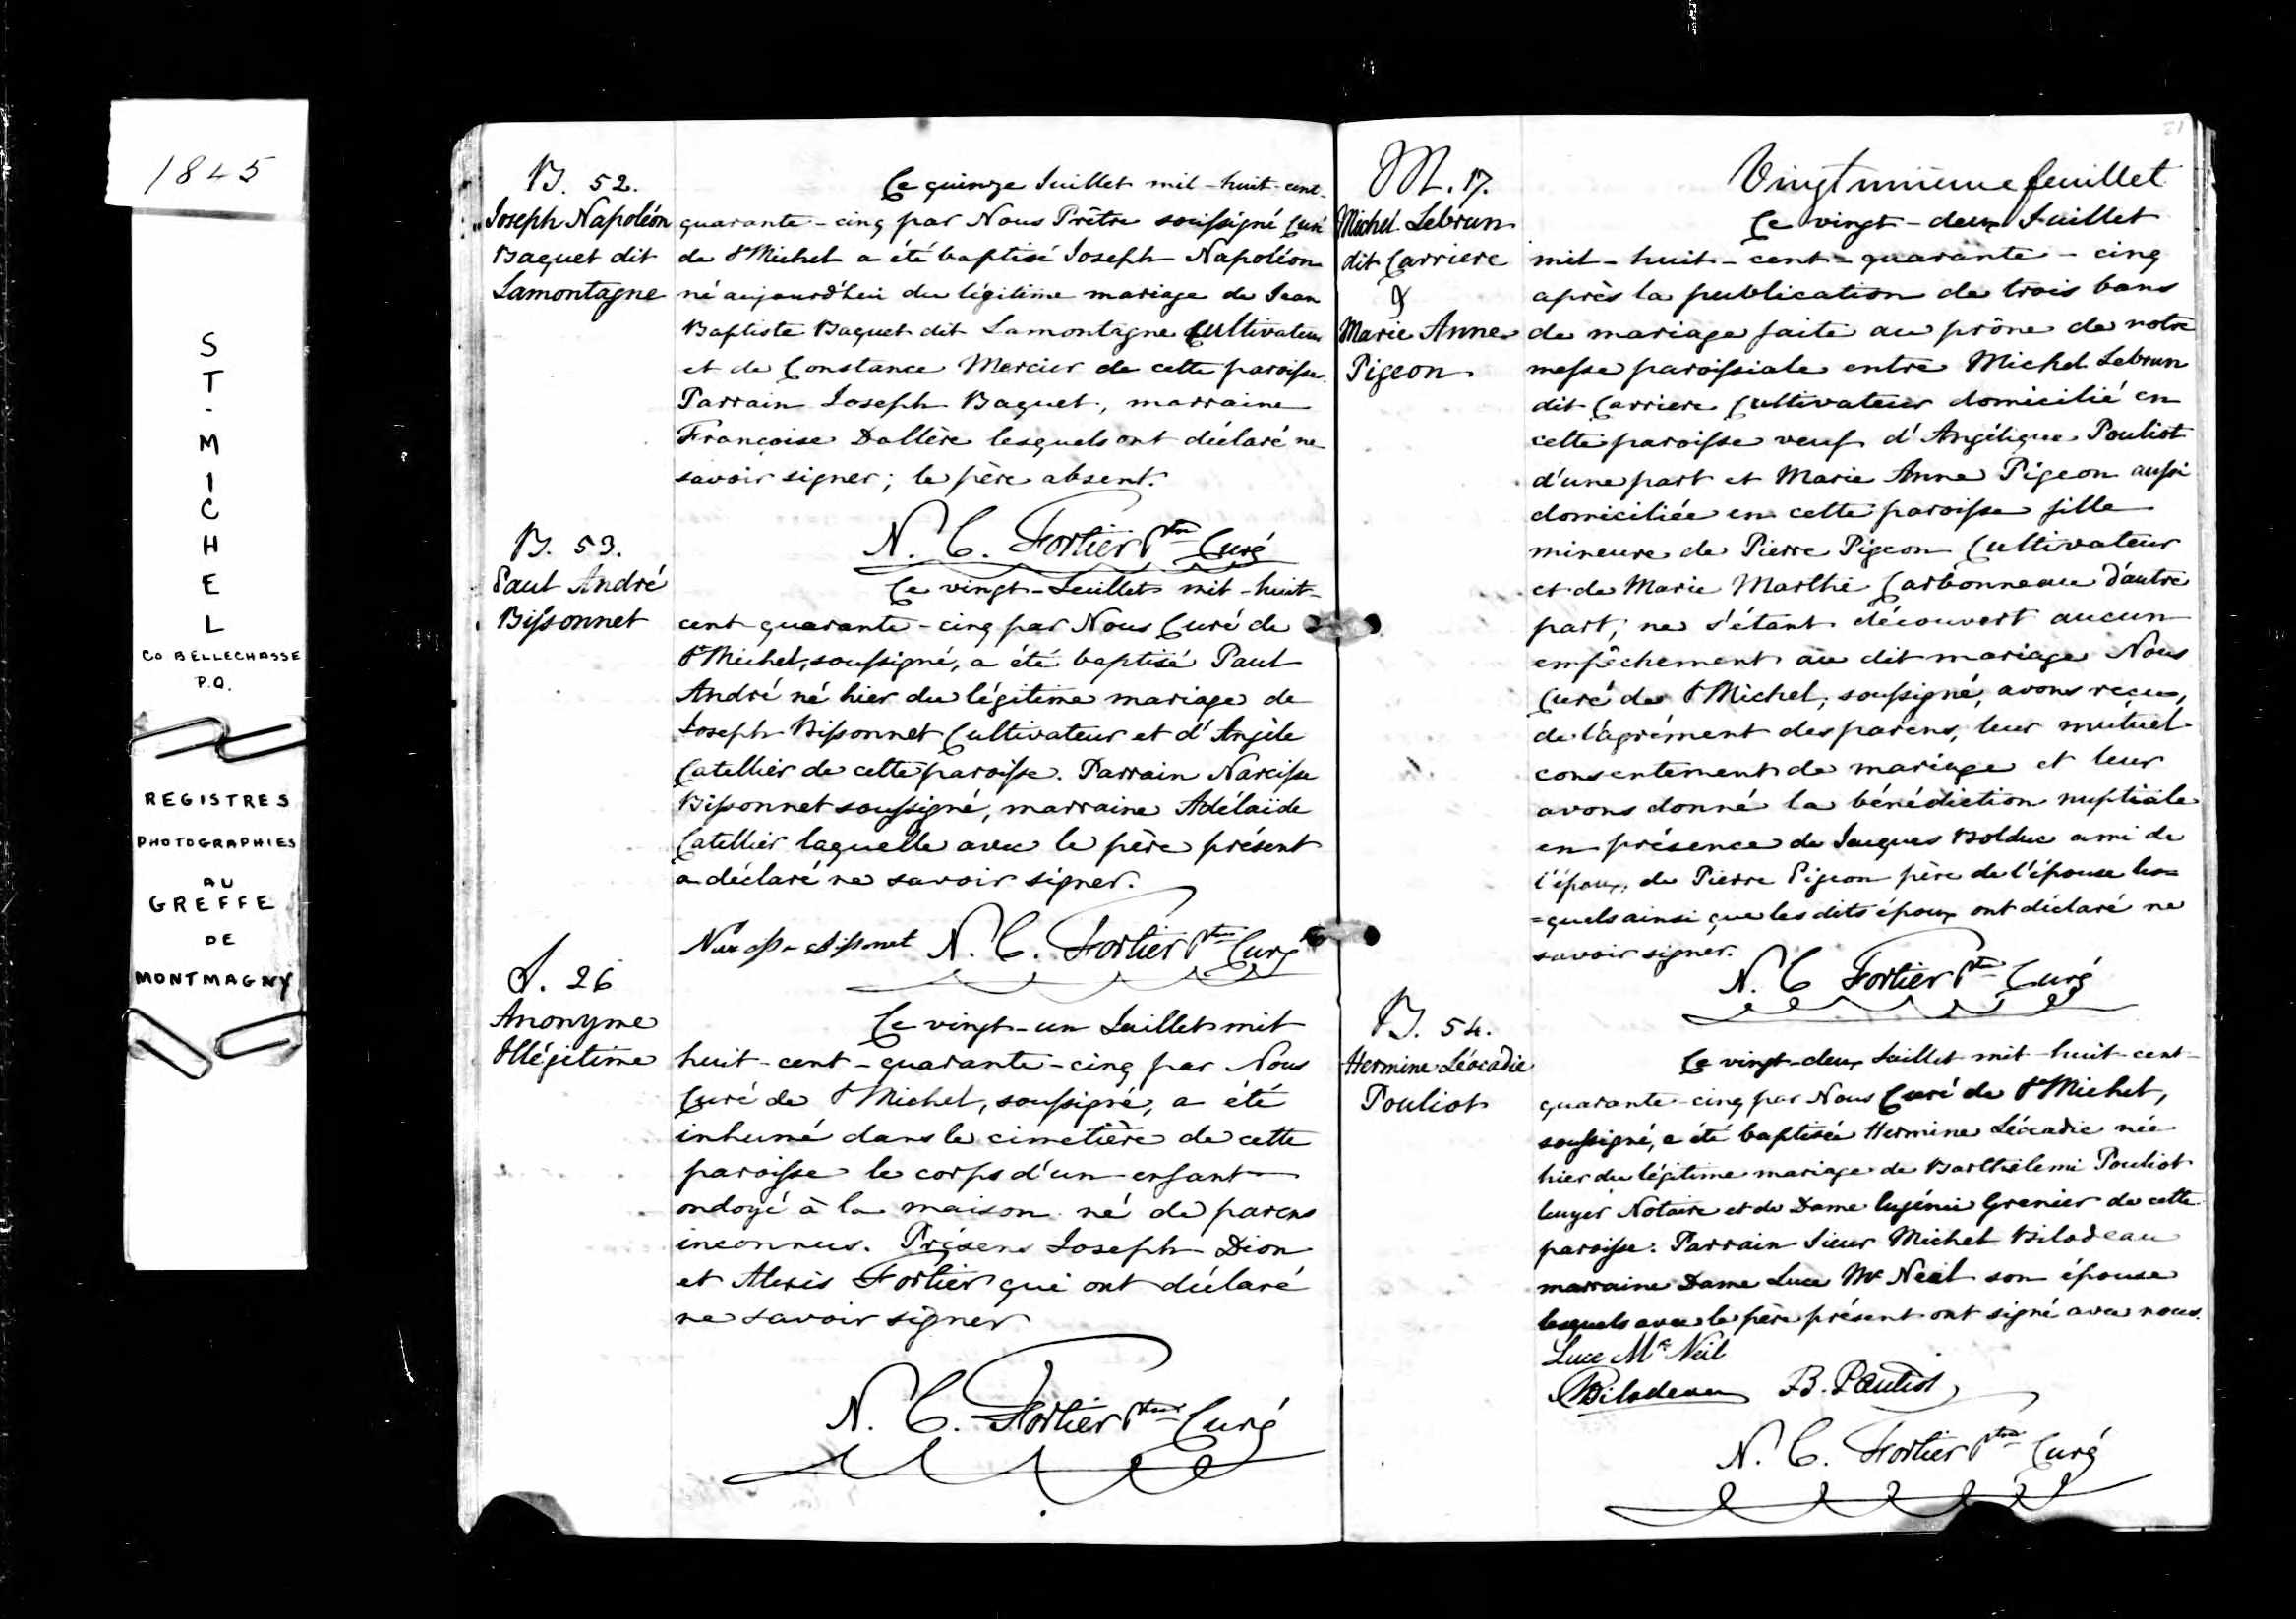 1845
ST. MICHEL
CO BELLECHASSE
P.Q.
REGISTRES
PHOTOGRAPHIES
AU
GREFFE
DE
MONTMAGNY
B. 52.
Joseph Napoléon
Baquet dit
Lamontagne
Ce quinze Juillet mil-huit-cent-
quarante-cinq par Nous Prêtre soussigné Curé
de St Michel a été baptisé Joseph Napoléon
né aujourd'hui du légitime mariage de Jean
Baptiste Baquet dit Lamontagne Cultivateur
et de Constance Mercier de cette paroisse.
Parrain Joseph Baquet, marraine
Françoise Dallère lesquels ont déclaré ne
savoir signer; le père absent.
N. C. Fortier Ptre Curé
B. 53.
Paul André
Bissonnet
Ce vingt-Juillet mil-huit-
cent quarante-cinq par Nous Curé de
St Michel, soussigné, a été baptisé Paul
André né hier du légitime mariage de
Joseph Bissonnet Cultivateur et d'Angèle
Catellier de cette paroisse. Parrain Narcisse
Bissonnet soussigné, marraine Adélaïde
Catellier laquelle avec le père présent
a déclaré ne savoir signer.
Narcisse Bissonet N. C. Fortier Ptre Curé
S. 26
Anonyme
Illégitime
Ce vingt-un Juillet mil
huit-cent-quarante-cinq par Nous
Curé de St Michel, soussigné, a été
inhumé dans le cimetière de cette
paroisse le corps d'un enfant
ondoyé à la maison né de parens
inconnus. Présens Joseph Dion
et Alexis Fortier qui ont déclaré
ne savoir signer
N. C. Fortier Ptre Curé
21
Vingt unième feuillet
M. 17.
Michel Lebrun
dit Carriere
&
Marie Anne
Pigeon.
Ce vingt-deux Juillet
mil-huit-cent-quarante-cinq
après la publication de trois bans
de mariage faite au prône de notre
messe paroissiale entre Michel Lebrun
dit Carriere Cultivateur domicilié en
cette paroisse veuf d'Angélique Pouliot
d'une part et Marie Anne Pigeon aussi
domiciliée en cette paroisse fille
mineure de Pierre Pigeon Cultivateur
et de Marie Marthe Carbonneau d'autre
part; ne s'étant découvert aucun
empêchement au dit mariage Nous
Curé de St Michel, soussigné, avons reçu,
de l'agrément des parens, leur mutuel
consentement de mariage et leur
avons donné la bénédiction nuptiale
en présence de Jacques Bolduc ami de
l'époux, de Pierre Pigeon père de l'épouse les=
=quels ainsi que les dits époux ont déclaré ne
savoir signer.
N. C Fortier Ptre Curé
B. 54.
Hermine Léocadie
Pouliot
Ce vingt-deux Juillet mil-huit-cent-
quarante-cinq par Nous Curé de St Michel,
soussigné, a été baptisée Hermine Léocadie née
hier du légitime mariage de Barthélemi Pouliot
Ecuyer Notaire et de Dame Eugénie Grenier de cette
paroisse. Parrain Sieur Michel Bilodeau
marraine Dame Luce Mc Neil son épouse
lesquels avec le père présent ont signé avec nous.
Luce Mc Neil
Bilodeau B. Pouliot
N. C. Fortier Ptre Curé